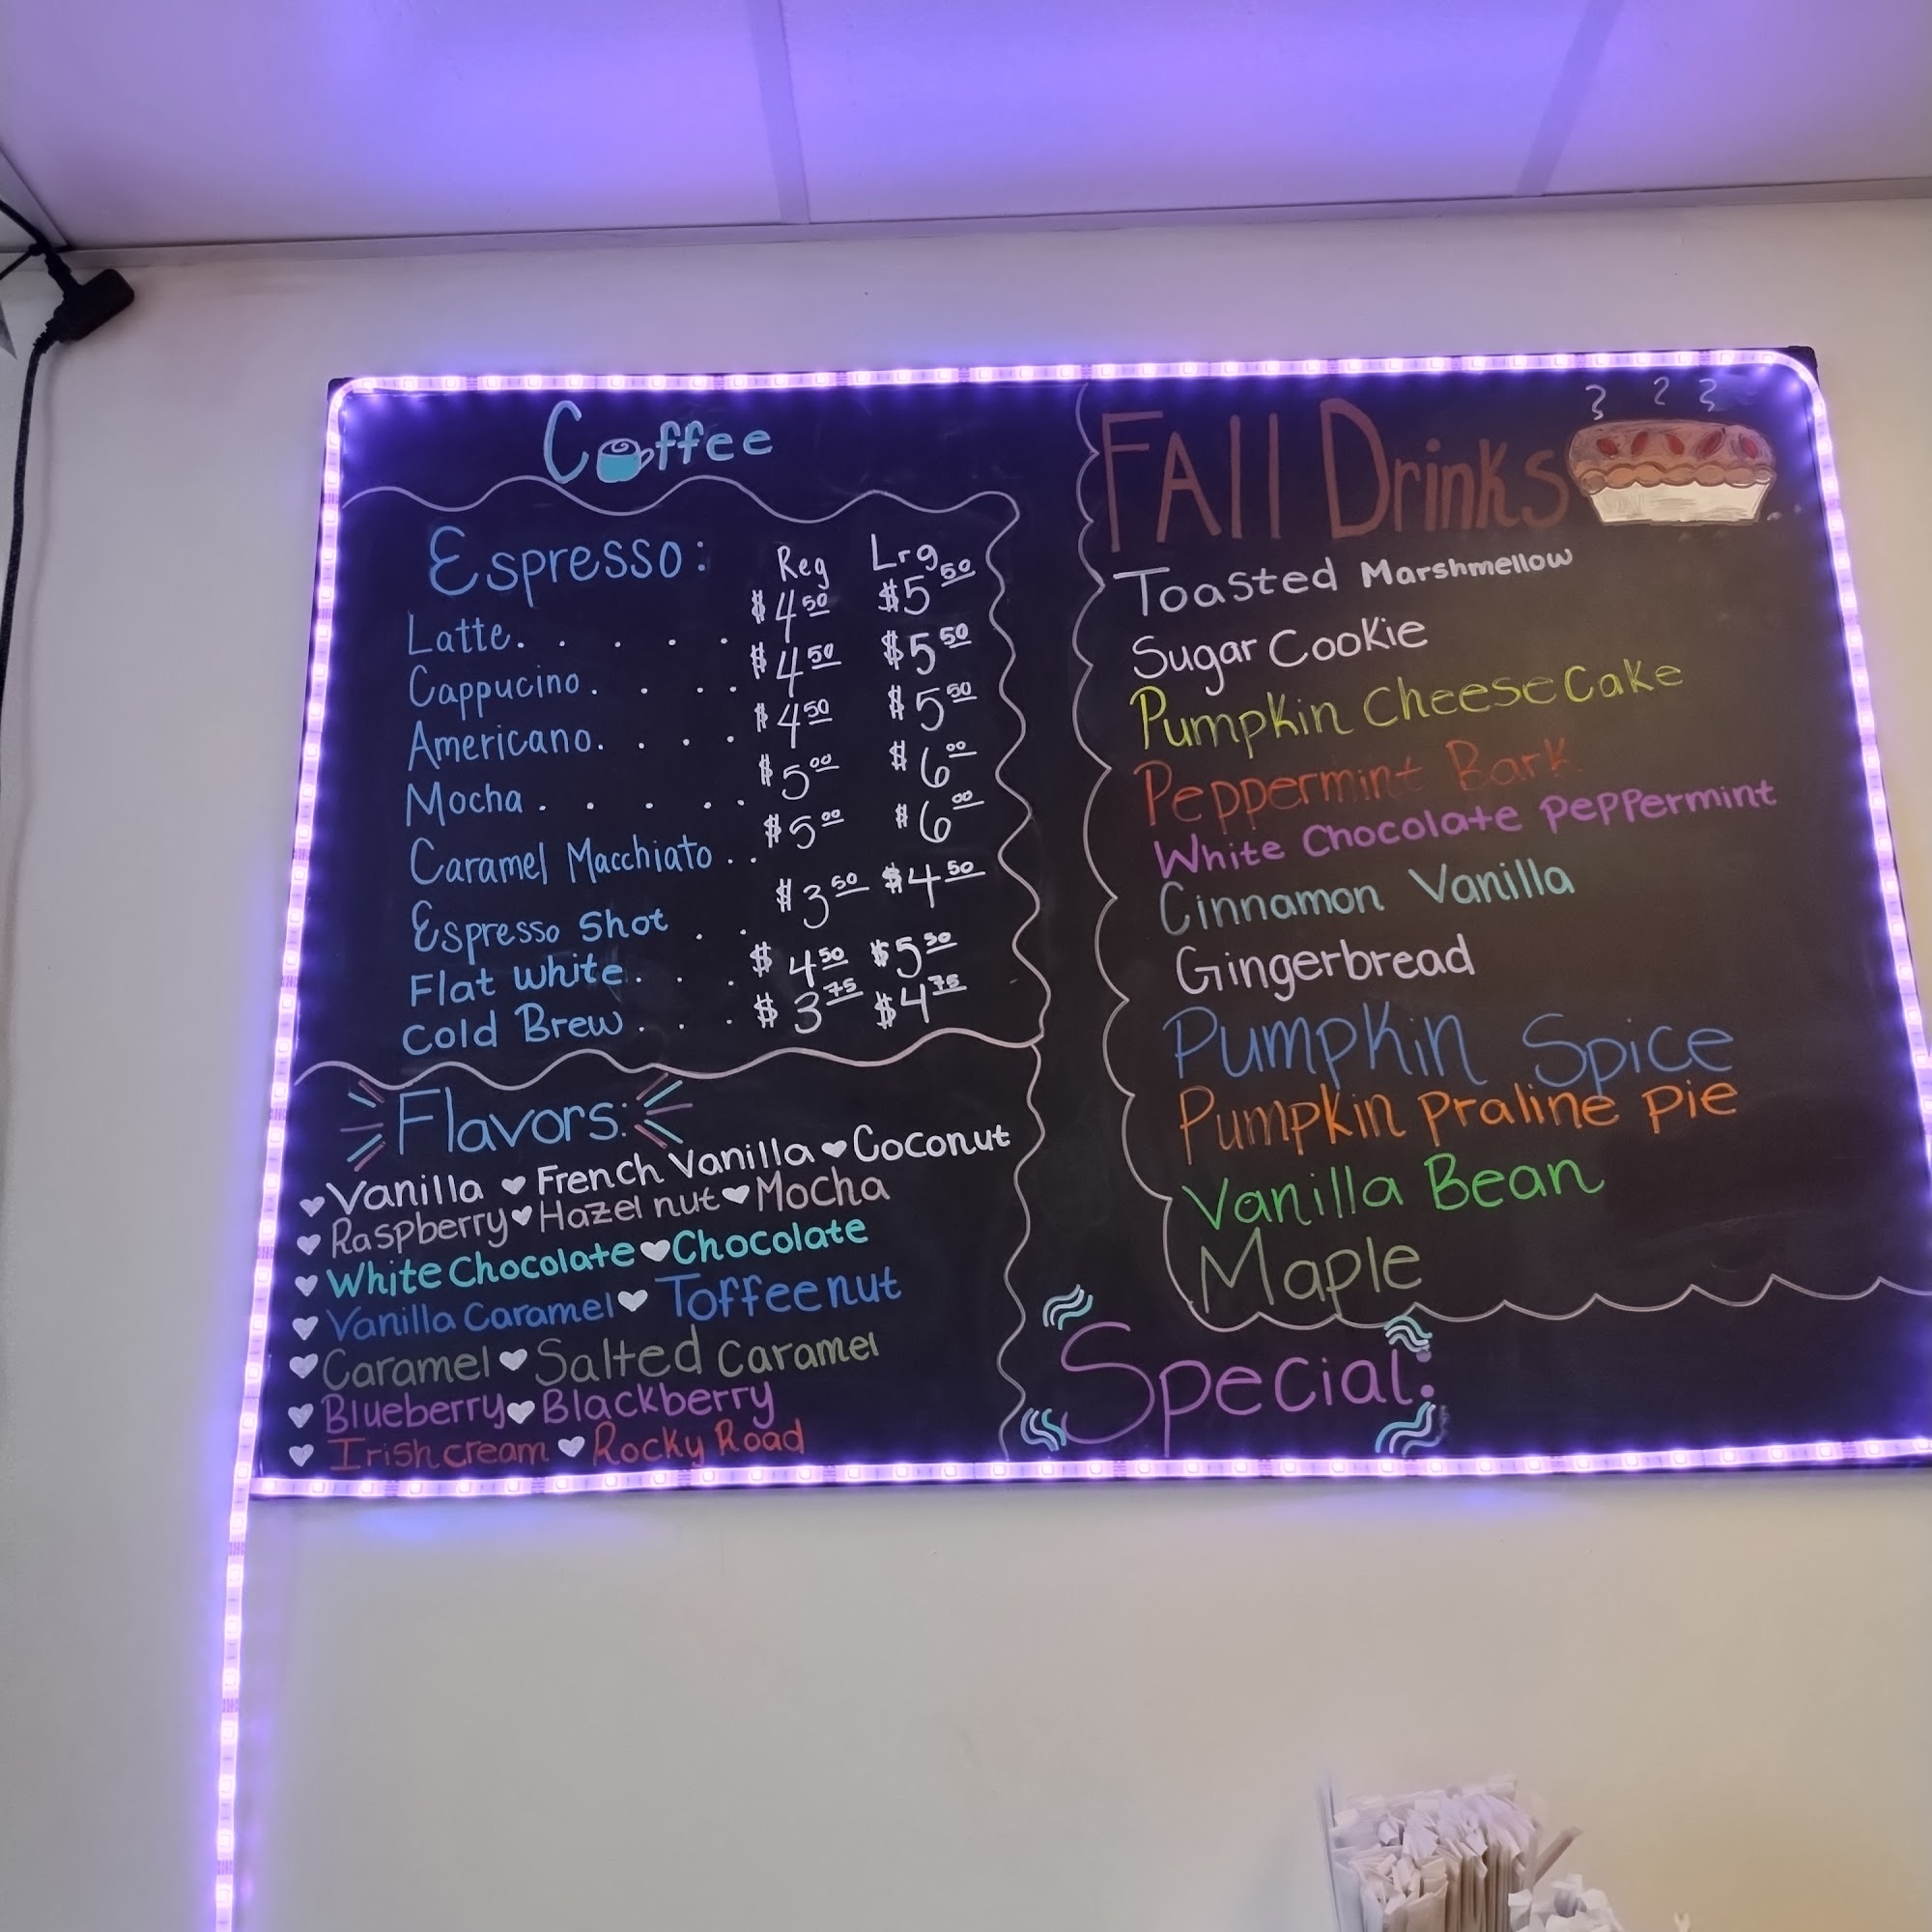 Coffee
Espresso: Reg Lrg
Latte. . . . . $4.50 $5.50
Cappucino. . . . $4.50 $5.50
Americano. . . . $4.50 $5.50
Mocha . . . . . $5.00 $6.00
Caramel Macchiato . . $5.00 $6.00
Espresso Shot . . $3.50 $4.50
Flat white. . . $4.50 $5.50
Cold Brew . . . $3.75 $4.75
Flavors:
Vanilla ♥ French Vanilla ♥ Coconut
♥ Raspberry ♥ Hazel nut ♥ Mocha
♥ White Chocolate ♥ Chocolate
♥ Vanilla Caramel ♥ Toffee nut
♥ Caramel ♥ Salted Caramel
♥ Blueberry ♥ Blackberry
♥ Irish cream ♥ Rocky Road
FAll Drinks
Toasted Marshmellow
Sugar Cookie
Pumpkin CheeseCake
Peppermint Bark
White Chocolate Peppermint
Cinnamon Vanilla
Gingerbread
Pumpkin Spice
Pumpkin Praline Pie
Vanilla Bean
Maple
Special: